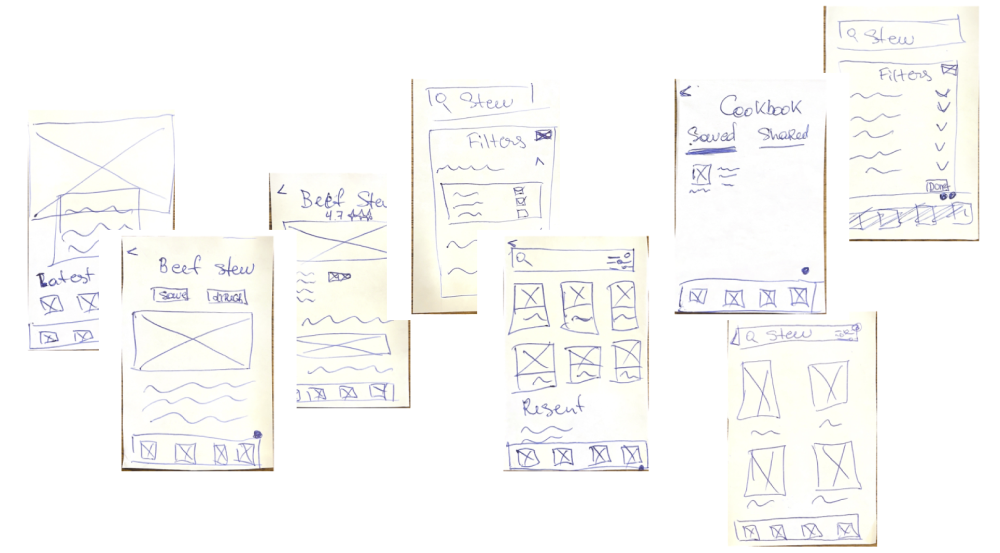 Latest
Beef stew
Save
Beef Stew
4.7
Stew
Filters
Resent
Cookbook
Saved Shared
Stew
Stew
Filters
Done